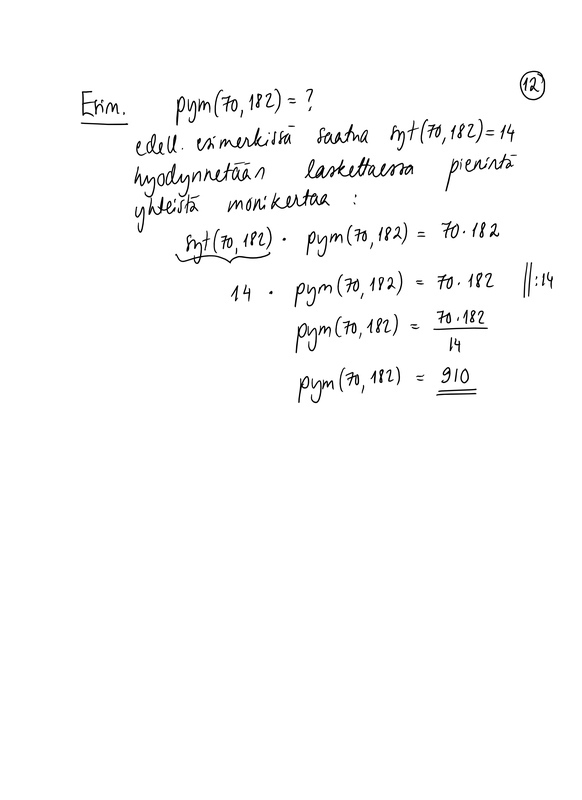 12
Esim. pym(70, 182) = ?
edell. esimerkissä saatua syt(70, 182) = 14
hyödynnetään laskettaessa pienintä
yhteistä monikertaa :
syt(70, 182) · pym(70, 182) = 70 · 182
14 · pym(70, 182) = 70 · 182 ||:14
pym(70, 182) = 70 · 182 / 14
pym(70, 182) = 910